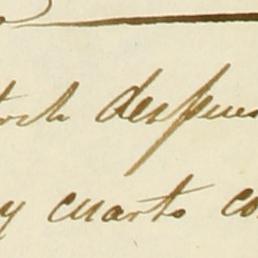 despues
y cuarto co